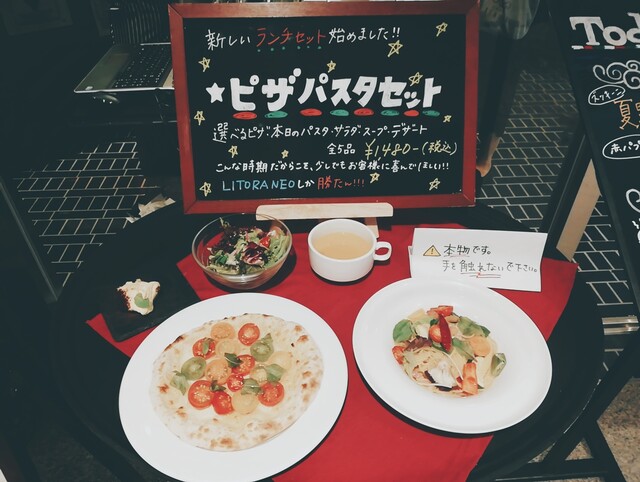 新しいランチセット始めました!!
★ピザパスタセット
選べるピザ・本日のパスタ・サラダ・スープ・デザート
全5品 ¥1,480-(税込)
こんな時期だからこそ、少しでもお客様に喜んでほしい!!
LITORANEOしか勝たん!!!
⚠本物です。
手を触れないで下さい。
Tod
ズッキーニ
夏
赤パプ